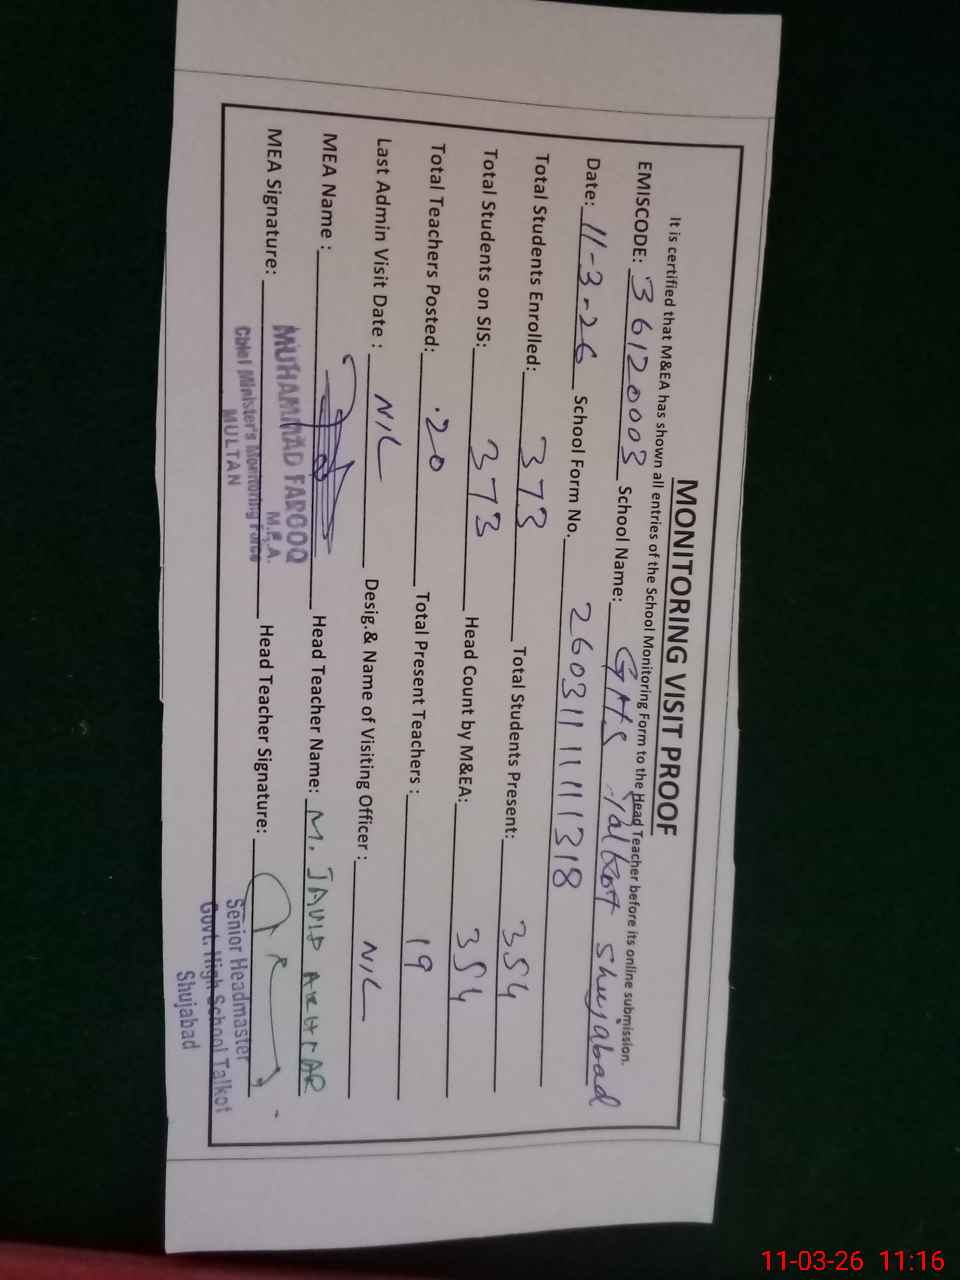 MONITORING VISIT PROOF
It is certified that M&EA has shown all entries of the School Monitoring Form to the Head Teacher before its online submission.
EMISCODE: 36120003 School Name: GHS Talkot Shujabad
Date: 11-3-26 School Form No. 2603111111318
Total Students Enrolled: 373 Total Students Present: 354
Total Students on SIS: 373 Head Count by M&EA: 354
Total Teachers Posted: 20 Total Present Teachers : 19
Last Admin Visit Date : NIL Desig.& Name of Visiting Officer : NIL
MEA Name : Head Teacher Name: M. JAVID AKHTAR
MEA Signature: Head Teacher Signature:
MUHAMMAD FAROOQ
M.E.A.
Chief Minister's Monitoring Force
MULTAN
Senior Headmaster
Govt. High School Talkot
Shujabad
11-03-26 11:16